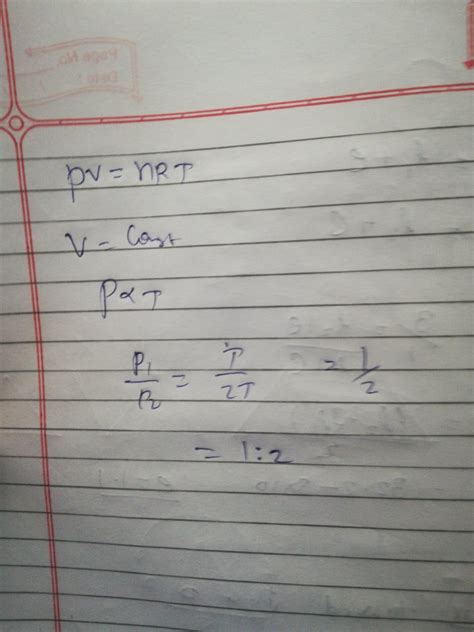 Page No.
Date:
PV = nRT
V = Const
P ∝ T
P₁/P₂ = T/2T = 1/2
= 1:2